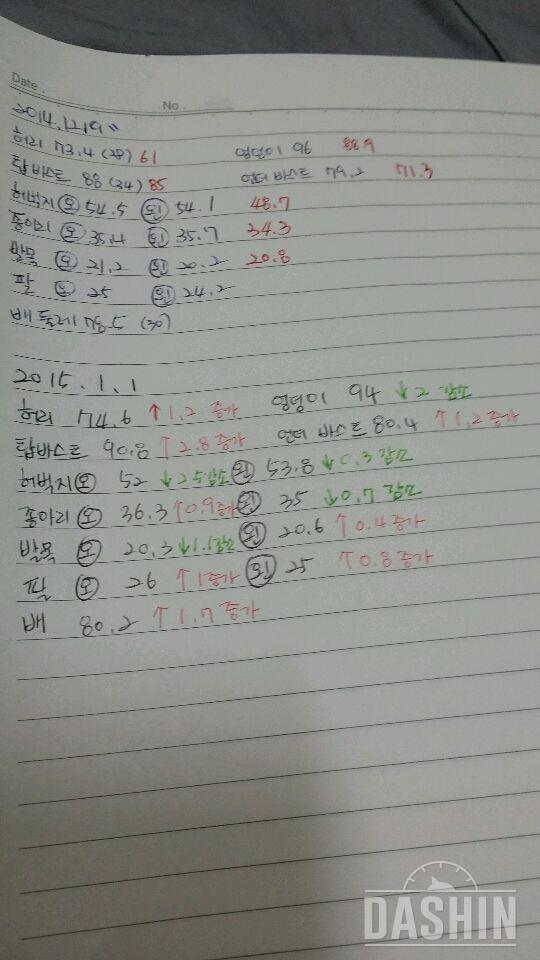 Date .
No .
2014.12.19 〃
허리 73.4 (29) 61 엉덩이 96 88.9
탑바스트 88 (34) 85 언더 바스트 79.2 71.3
허벅지 오 54.5 왼 54.1 48.7
종아리 오 35.4 왼 35.7 34.3
발목 오 21.2 왼 20.2 20.8
팔 오 25 왼 24.2
배 둘레 78.5 (30)
2015.1.1
허리 74.6 ↑1.2 증가 엉덩이 94 ↓2 감소
탑바스트 90.8 ↑2.8 증가 언더 바스트 80.4 ↑1.2 증가
허벅지 오 52 ↓2.5 감소 왼 53.8 ↓0.3 감소
종아리 오 36.3 ↑0.9 증가 왼 35 ↓0.7 감소
발목 오 20.3 ↓1.1 감소 왼 20.6 ↑0.4 증가
팔 오 26 ↑1 증가 왼 25 ↑0.8 증가
배 80.2 ↑1.7 증가
DASHIN